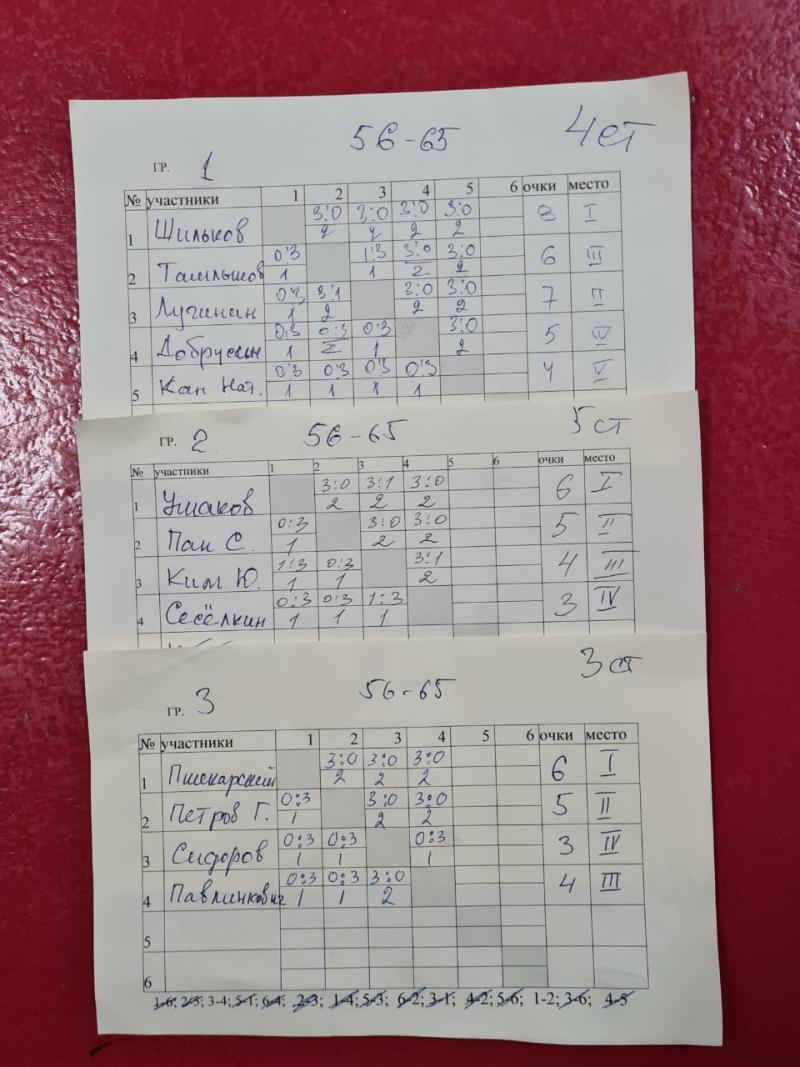 56-65 4ст
ГР. 1
№ участники 1 2 3 4 5 6 очки место
1 Шильков 3:0 3:0 3:0 3:0 8 I
2 2 2 2
2 0:3 1:3 3:0 3:0 6 III
1 1 2 2
3 Лугинин 0:3 3:1 3:0 3:0 7 II
1 2 2 2
4 Добрусин 0:3 0:3 0:3 3:0 5 IV
1 1 2
5 Кан Нат. 0:3 0:3 0:3 0:3 4 V
1 1 1 1
56-65 5ст
ГР. 2.
№ участники 1 2 3 4 5 6 очки место
1 Ушаков 3:0 3:1 3:0 6 I
2 2 2
2 Пак С. 0:3 3:0 3:0 5 II
1 2 2
3 Ким Ю. 1:3 0:3 3:1 4 III
1 1 2
4 Сесёлкин 0:3 0:3 1:3 3 IV
1 1 1
56-65 3ст
ГР. 3
№ участники 1 2 3 4 5 6 очки место
1 Пшекарский 3:0 3:0 3:0 6 I
2 2 2
2 Петров Г. 0:3 3:0 3:0 5 II
1 2 2
3 Сидоров 0:3 0:3 0:3 3 IV
1 1 1
4 Павлинкович 0:3 0:3 3:0 4 III
1 1 2
5
6
1-6; 2-5; 3-4; 5-1; 6-4; 2-3; 1-4; 5-3; 6-2; 3-1; 4-2; 5-6; 1-2; 3-6; 4-5